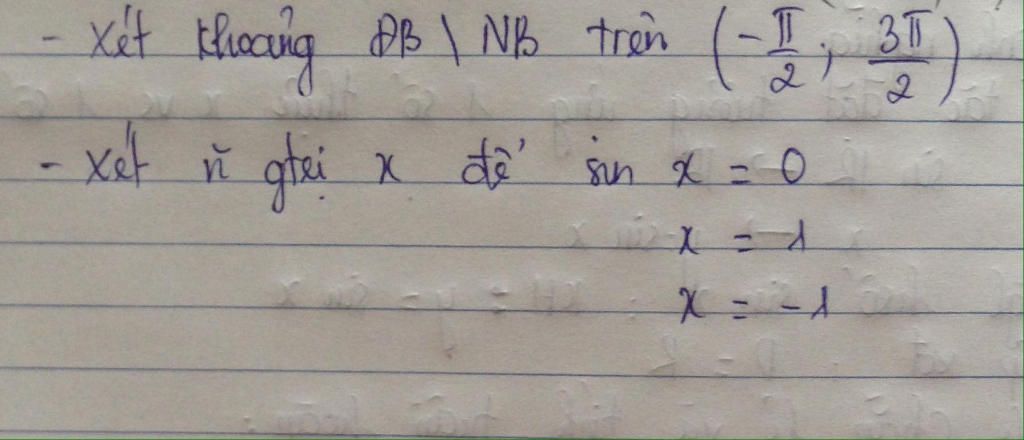 - Xét khoảng ĐB \ NB trên (-π/2; 3π/2)
- Xét ñ gtrị x để sin x = 0
x = 1
x = -1